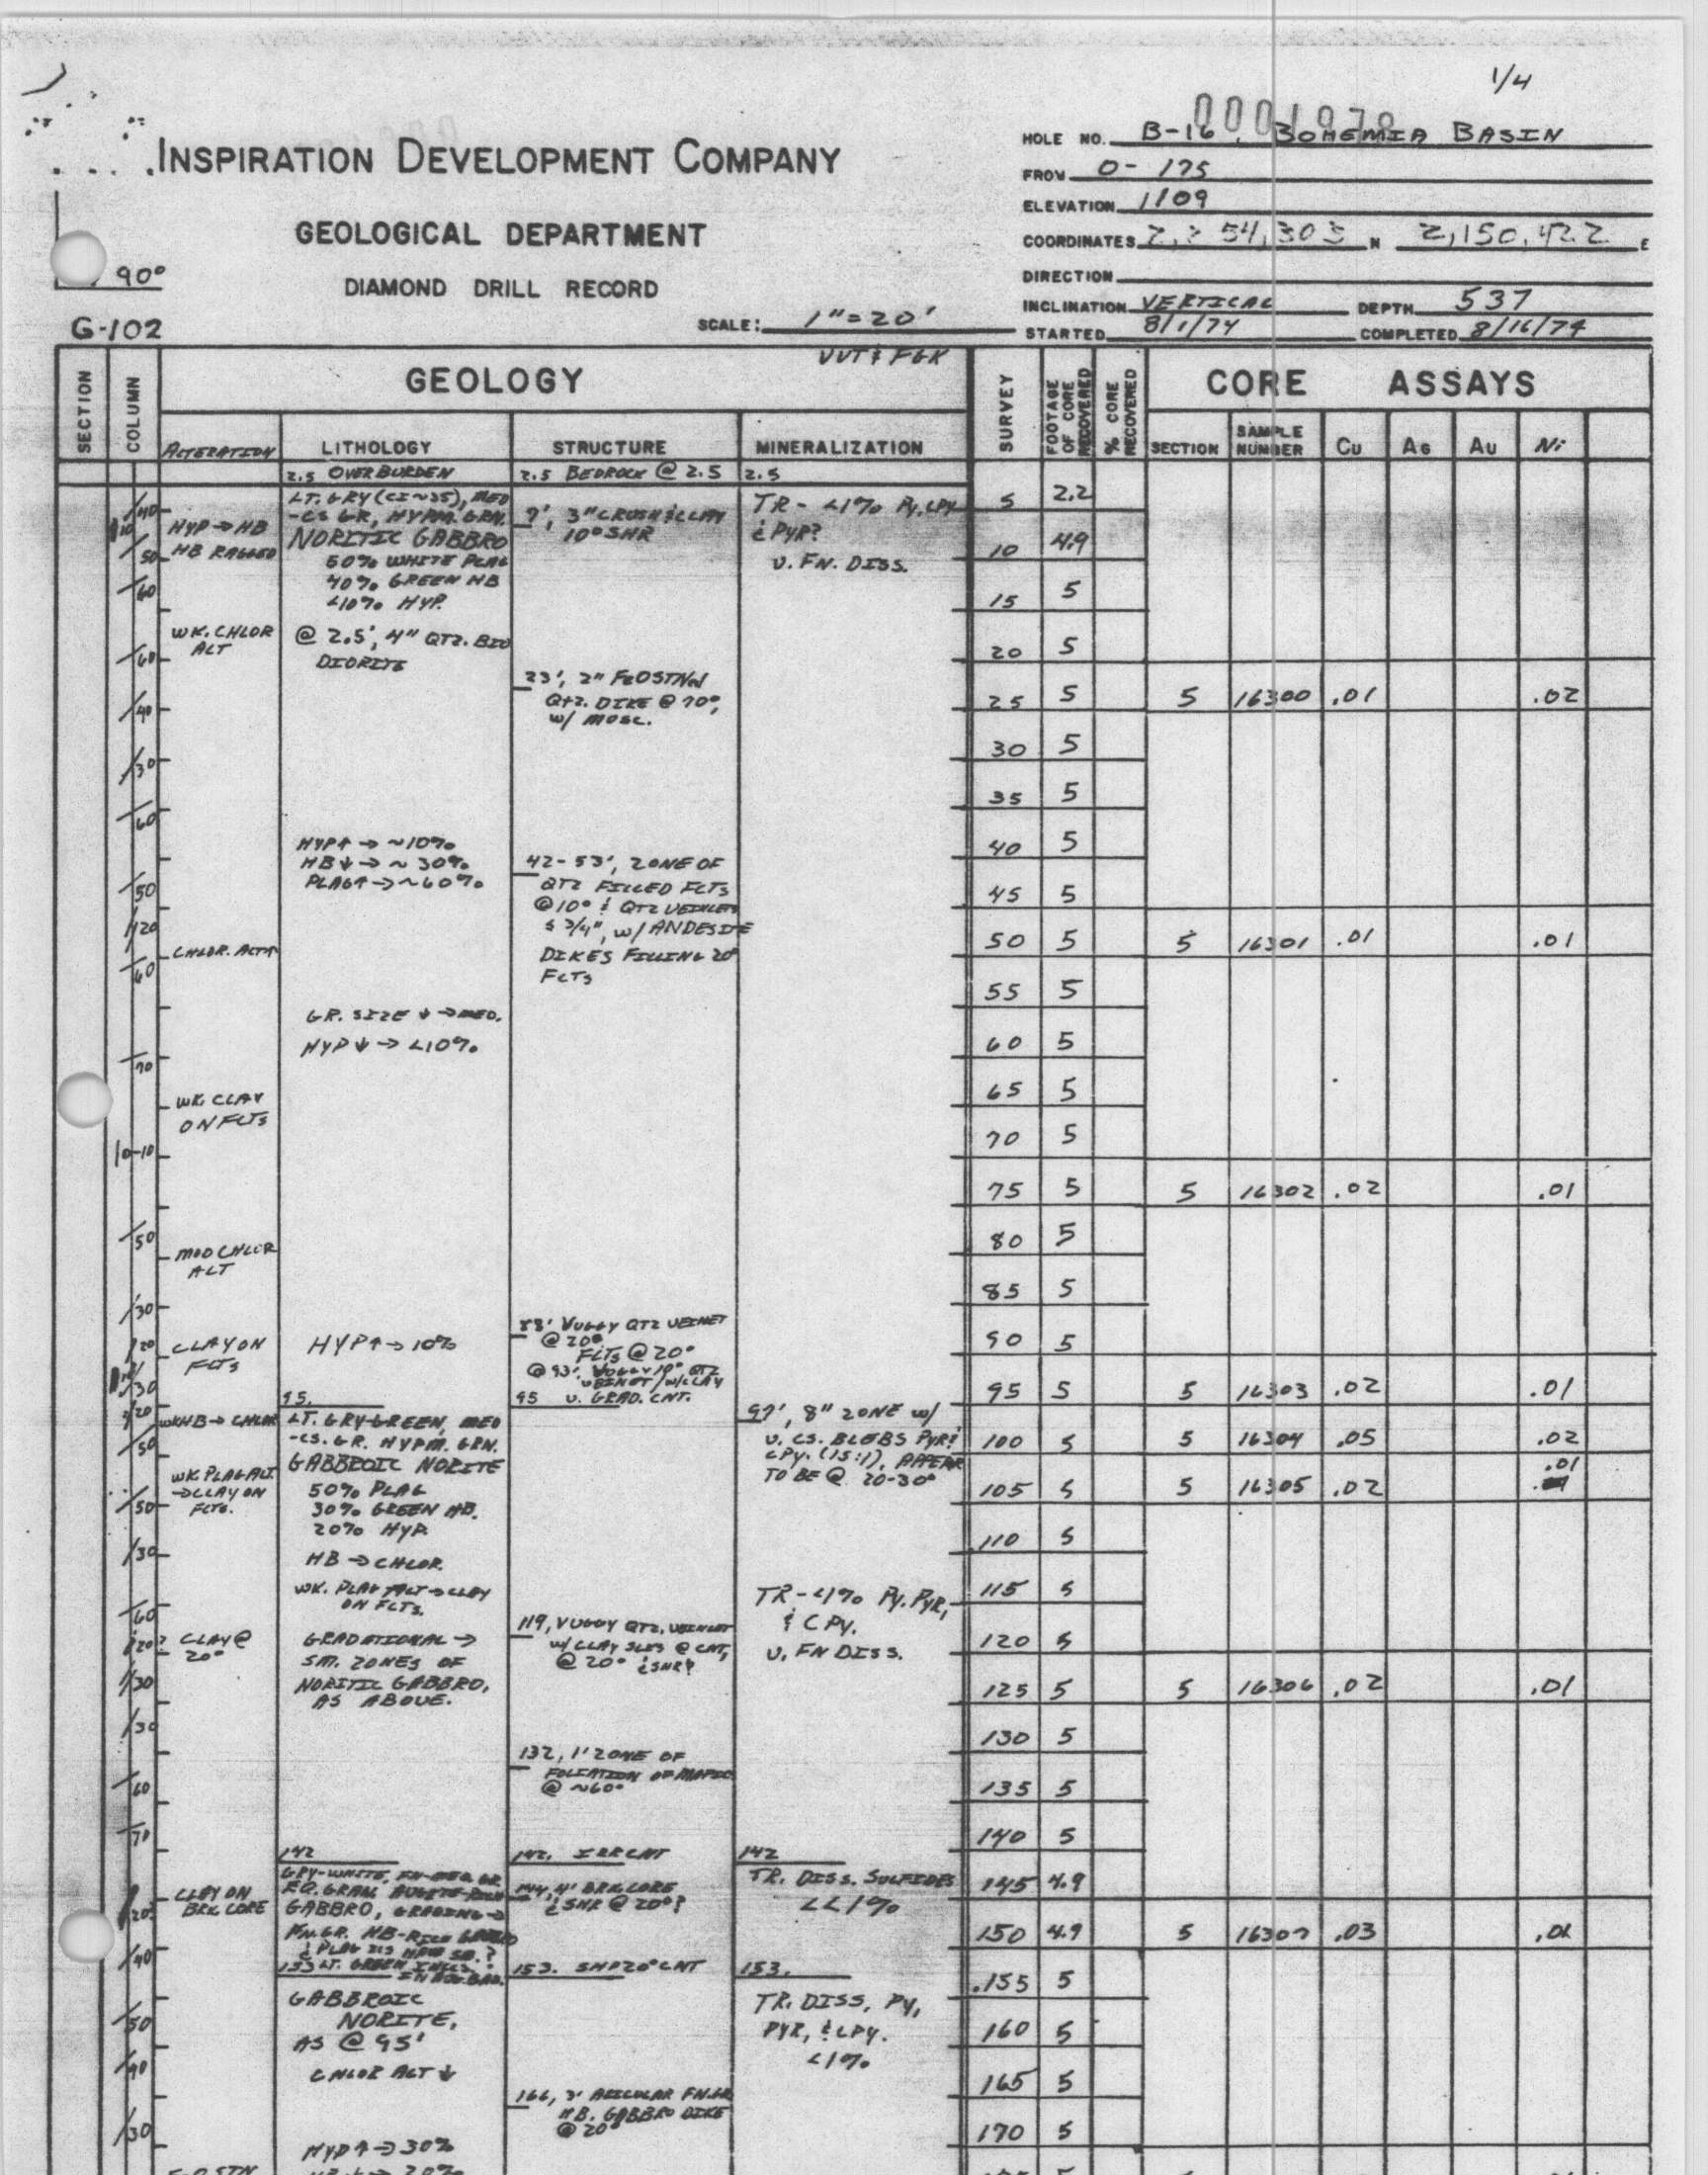 1/4
0001978
HOLE NO. B-16, BOHEMIA BASIN
INSPIRATION DEVELOPMENT COMPANY
FROM 0-175
ELEVATION 1109
GEOLOGICAL DEPARTMENT
COORDINATES 54,303 N 2,150,422 E
90°
DIAMOND DRILL RECORD
DIRECTION
INCLINATION VERTICAL DEPTH 537
G-102
SCALE: 1"=20'
STARTED 8/1/74 COMPLETED 8/16/74
VVT & FGK
GEOLOGY
CORE ASSAYS
SECTION COLUMN ALTERATION LITHOLOGY STRUCTURE MINERALIZATION SURVEY FOOTAGE OF CORE RECOVERED % CORE RECOVERED SECTION SAMPLE NUMBER Cu As Au Ni
40
10
50
60
60
40
30
60
50
20
60
70
0-10
50
30
20
30
20
50
50
30
60
20
30
30
60
70
20
40
50
40
30
HYP → HB
HB RAGGED
WK. CHLOR
ALT
CHLOR. ALT↑
WK. CLAY
ON FLTS
MOD CHLOR
ALT
CLAY ON
FLTS
WK HB → CHLOR
WK. PLAG ALT.
→ CLAY ON
FLTS.
CLAY @
20°
CLAY ON
BRK. CORE
2.5 OVERBURDEN
LT. GRY (CI~35), MED
-CS GR, HYPM. GRN.
NORITIC GABBRO
50% WHITE PLAG
40% GREEN HB
<10% HYP.
@ 2.5', 4" QTZ. BIO
DIORITE
HYP↑ → ~10%
HB↓ → ~30%
PLAG↑ → ~60%
GR. SIZE ↓ → MED.
HYP↓ → <10%
HYP↑ → 10%
95.
LT. GRY-GREEN, MED
-CS. GR. HYPM. GRN.
GABBROIC NORITE
50% PLAG
30% GREEN HB.
20% HYP
HB → CHLOR.
WK. PLAG ALT → CLAY
ON FLTS.
GRADATIONAL →
SM. ZONES OF
NORITIC GABBRO,
AS ABOVE.
142
GRY-WHITE, FN-MED GR
EQ. GRAN. AUGITE-RICH
GABBRO, GRADING →
FN. GR. HB-RICH GABBRO
153
GABBROIC
NORITE,
AS @ 95'
CHLOR ALT ↓
HYP↑ → 30%
2.5 BEDROCK @ 2.5
9', 3" CRUSH & CLAY
10° SHR
23', 2" FEOSTND
QTZ. DIKE @ 70°,
W/ MOSC.
42-53', ZONE OF
QTZ FILLED FLTS
@ 10° & QTZ VEINLETS
≤ 3/4", W/ ANDESITE
DIKES FILLING 20°
FLTS
88' VUGGY QTZ VEINLET
@ 20°
FLTS @ 20°
@ 93', VUGGY 10° QTZ
VEINLET W/ CLAY
95 V. GRAD. CNT.
119, VUGGY QTZ. VEINLET
W/ CLAY SLKS @ CNT,
@ 20° & SHR?
132, 1' ZONE OF
FOLIATION OF MAFICS
@ ~60°
142. IRR CNT
144, 4' BRK CORE
& SHR @ 20°?
153. SHP 20° CNT
166, 3' ACICULAR FN. GR
HB. GABBRO DIKE
@ 20°
2.5
TR - <1% Py, CPY
& PYR?
V. FN. DISS.
97', 8" ZONE W/
V. CS. BLEBS PYR &
CPY. (15:1), APPEAR
TO BE @ 20-30°
TR - <1% PY. PYR,
& CPY.
V. FN DISS.
142
TR. DISS. SULFIDES
<<1%
153.
TR. DISS, PY,
PYR, & CPY.
<1%
5 2.2
10 4.9
15 5
20 5
25 5 5 16300 .01 .02
30 5
35 5
40 5
45 5
50 5 5 16301 .01 .01
55 5
60 5
65 5
70 5
75 5 5 16302 .02 .01
80 5
85 5
90 5
95 5 5 16303 .02 .01
100 5 5 16304 .05 .02
105 5 5 16305 .02 .01
110 5
115 5
120 5
125 5 5 16306 .02 .01
130 5
135 5
140 5
145 4.9
150 4.9 5 16307 .03
155 5
160 5
165 5
170 5